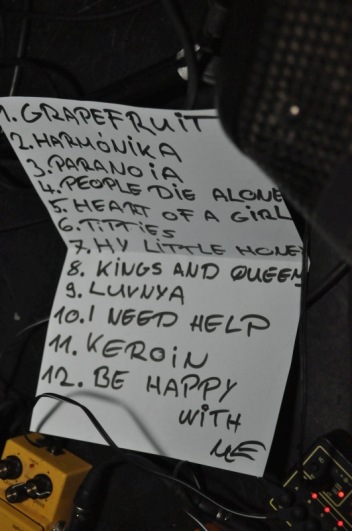 1. GRAPEFRUIT
2. HARMONIKA
3. PARANOiA
4. PEOPLE DIE ALONE
5. HEART OF A GiRL
6. TiTTiES
7. MY LiTTLE HONEY
8. KiNGS AND QUEEN
9. LUVNYA
10. I NEED HELP
11. KEROiN
12. BE HAPPY
WiTH
ME